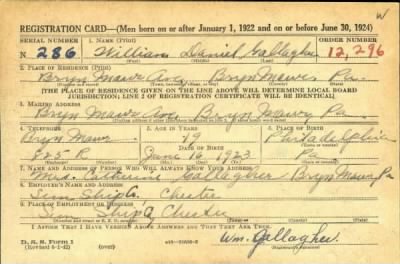 W
REGISTRATION CARD—(Men born on or after January 1, 1922 and on or before June 30, 1924)
SERIAL NUMBER 1. NAME (Print) ORDER NUMBER
N 286 William Daniel Gallagher 12,296
2. PLACE OF RESIDENCE (Print)
Bryn Mawr Ave Bryn Mawr Pa.
[THE PLACE OF RESIDENCE GIVEN ON THE LINE ABOVE WILL DETERMINE LOCAL BOARD
JURISDICTION; LINE 2 OF REGISTRATION CERTIFICATE WILL BE IDENTICAL]
3. MAILING ADDRESS
Bryn Mawr Ave Bryn Mawr Pa
4. TELEPHONE 5. AGE IN YEARS 6. PLACE OF BIRTH
Bryn Mawr 19 Philadelphia
DATE OF BIRTH
825 R June 16 1923 Pa
7. NAME AND ADDRESS OF PERSON WHO WILL ALWAYS KNOW YOUR ADDRESS
Mrs. Catherine Gallagher Bryn Mawr Pa
8. EMPLOYER'S NAME AND ADDRESS
Sun Ship Chester
9. PLACE OF EMPLOYMENT OR BUSINESS
Sun Ship Chester
I AFFIRM THAT I HAVE VERIFIED ABOVE ANSWERS AND THAT THEY ARE TRUE.
D. S. S. Form 1
Wm. Gallagher